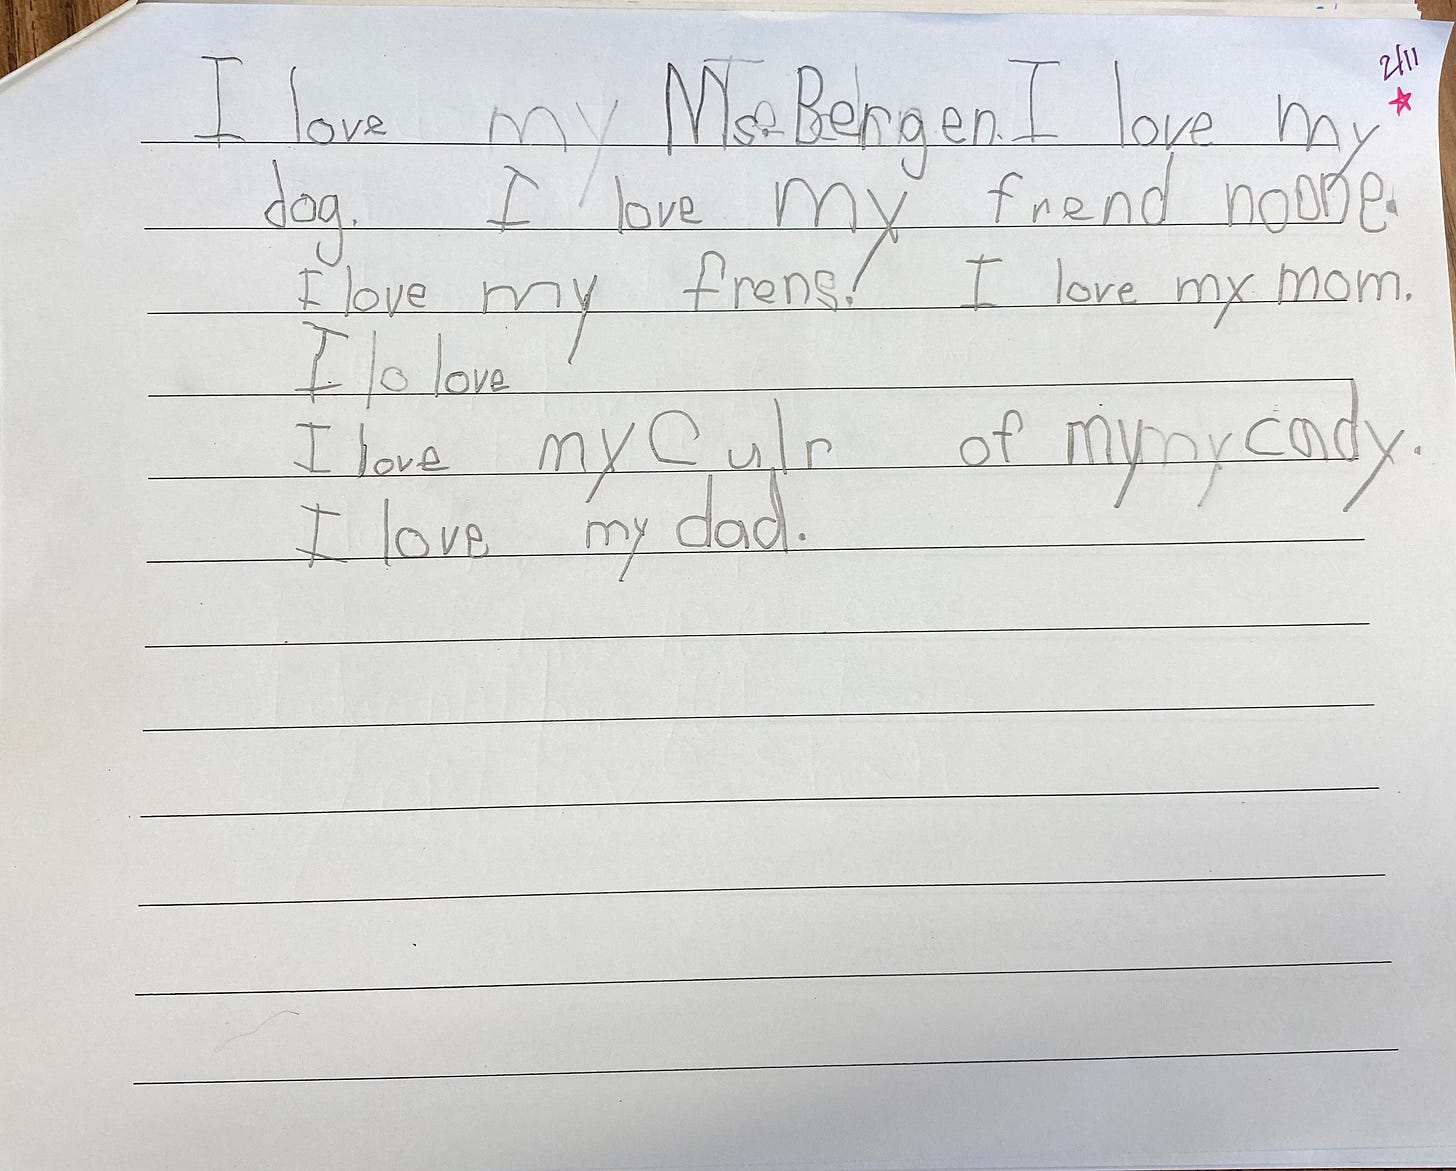 2/11
I love my Ms. Bergen. I love my
dog. I love my frend
I love my frens! I love my mom.
I lo love
I love my Culr of my my cady.
I love my dad.